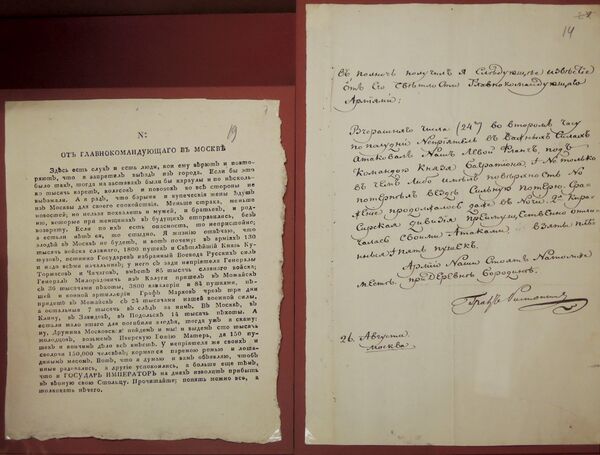 N:
19
ОТЪ ГЛАВНОКОМАНДУЮЩАГО ВЪ МОСКВѢ
Здѣсь есть слухъ и есть люди, кои ему вѣрютъ и повто-
ряютъ, что я запретилъ выѣздъ изъ города. Если бы это
было такъ, тогда на заставахъ были бы караулы и по нѣсколь-
ку тысячъ каретъ, колясокъ и повозокъ во всѣ стороны не
выѣзжали. А я радъ, что барыни и купеческія жены ѣдутъ
изъ Москвы для своего спокойствія. Меньше страха, меньше
новостей; но нельзя похвалить и мужей, и братьевъ, и род-
ню, которые при женщинахъ въ будущихъ отправились, безъ
возврату. Если по ихъ есть опасность, то непристойно;
а естьли нѣтъ ея, то стыдно. Я жизнію отвѣчаю, что
злодѣй въ Москвѣ не будетъ, и вотъ почему: въ арміяхъ 130
тысячъ войска славнаго, 1800 пушекъ и Свѣтлѣйшій Князь Ку-
тузовъ, истинно Государевъ избранный Воевода Русскихъ силъ
и надъ всѣми начальникъ; у него сзади непріятеля Генералы
Тормасовъ и Чичаговъ, вмѣстѣ 85 тысячъ славнаго войска;
Генералъ Милорадовичь изъ Калуги пришелъ въ Можайскъ
съ 36 тысячами пѣхоты, 3800 кавалеріи и 84 пушками, пѣ-
шей и конной артиллеріи Графъ Марковъ чрезъ три дни
придетъ въ Можайскъ съ 24 тысячами нашей военной силы,
а остальныя 7 тысячъ въ слѣдъ за нимъ. Въ Москвѣ, въ
Клину, въ Завидовѣ, въ Подольскѣ 14 тысячъ пѣхоты. А
естьли мало этаго для погибели злодѣя, тогда ужъ я скажу:
ну, Дружина Московская! пойдемъ и мы! и выдемъ сто тысячь
молодцовъ, возмемъ Иверскую Божію Матерь, да 150 пу-
шекъ и кончимъ дѣло всѣ вмѣстѣ. У непріятеля же своихъ и
сволочи 150,000 человѣкъ; кормятся пареною рожью и лоша-
динымъ мясомъ. Вотъ, что я думаю и вамъ объявляю, чтобъ
иные радовались, а другіе успокоились, а больше еще тѣмъ,
что и ГОСУДАРЬ ИМПЕРАТОРЪ на дняхъ изволитъ прибыть
въ вѣрную свою Столицу. Прочитайте; понять можно все, а
толковать нѣчего.
14
въ полночь получилъ я слѣдующее извѣстіе
отъ Его Свѣтлости Главнокомандующаго
Арміями:
Вчерашняго числа (24го) во второмъ часу
по полудни Непріятель въ важныхъ силахъ
атаковалъ нашъ левой флангъ, подъ
Командою Князя Багратіона, и не только
въ чемъ либо имелъ поверхность но
потерпелъ вездѣ сильную потерю. Сра-
женіе продолжалось даже въ ночи. 2я Кира-
сирская дивизія преимущественно отли-
чалась своими атаками. взяты пле-
нныя и пять пушекъ.
Арміи Наши стоятъ на томъ же
месте при деревнѣ Бородинѣ.
Графъ Растопчинъ
26. Августа
Москва.